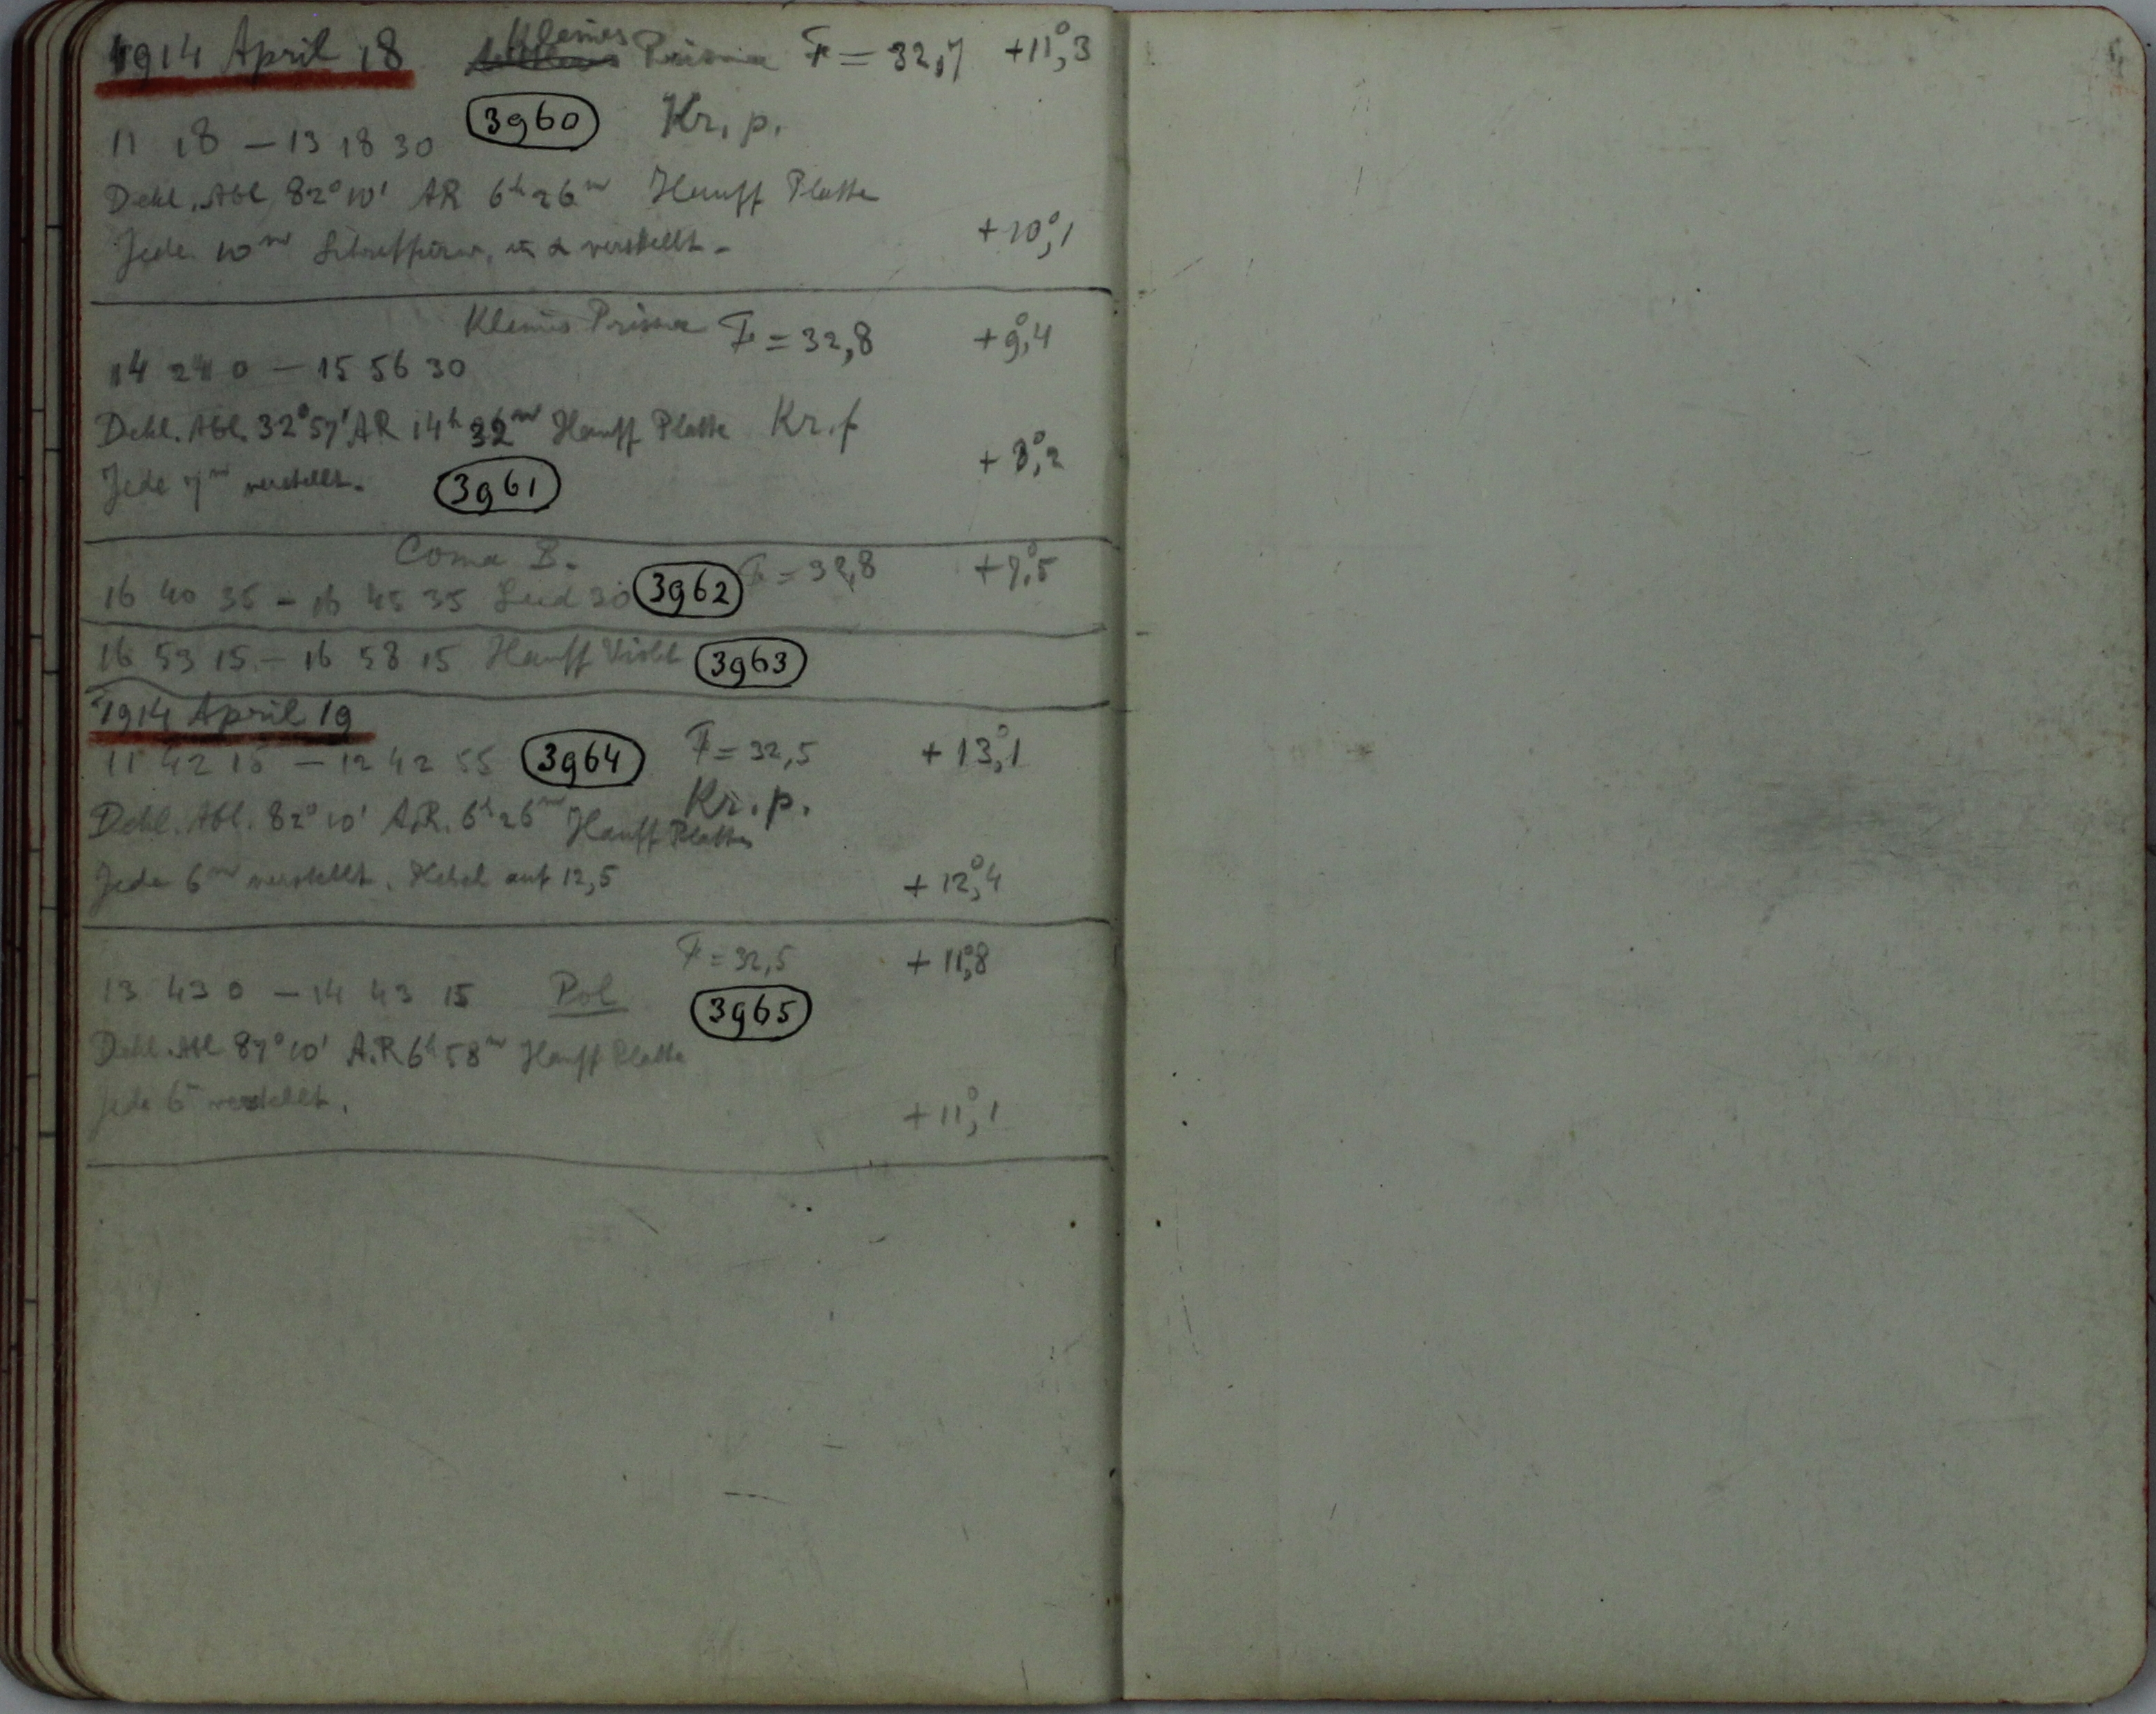 1914 April 18 Kleines Prisma F = 32,7 +11°,3
11 18 – 13 18 30 3960 Kr. p.
Dekl. Abl. 82° 10' AR 6h 26m Hauff Platte
Jede 10m verstellt. +10°,1
Kleines Prisma F = 32,8 +9°,4
14 24 0 – 15 56 30
Dekl. Abl. 32° 57' AR 14h 32m Hauff Platte Kr. f
+8°,2
Jede 7m verstellt. 3961
Coma B. F = 32,8 +7°,5
16 40 35 – 16 45 35 30 3962
16 53 15 – 16 58 15 Hauff Violet 3963
1914 April 19
11 42 15 – 12 42 55 3964 F = 32,5 +13°,1
Kr. p.
Dekl. Abl. 82° 10' A.R. 6h 26m Hauff Platte
Jede 6m verstellt. auf 12,5 +12°,4
F = 32,5 +11°,8
13 43 0 – 14 43 15 Pol 3965
Dekl. Abl 87° 10' A.R 6h 58m Hauff Platte
Jede 6m verstellt. +11°,1